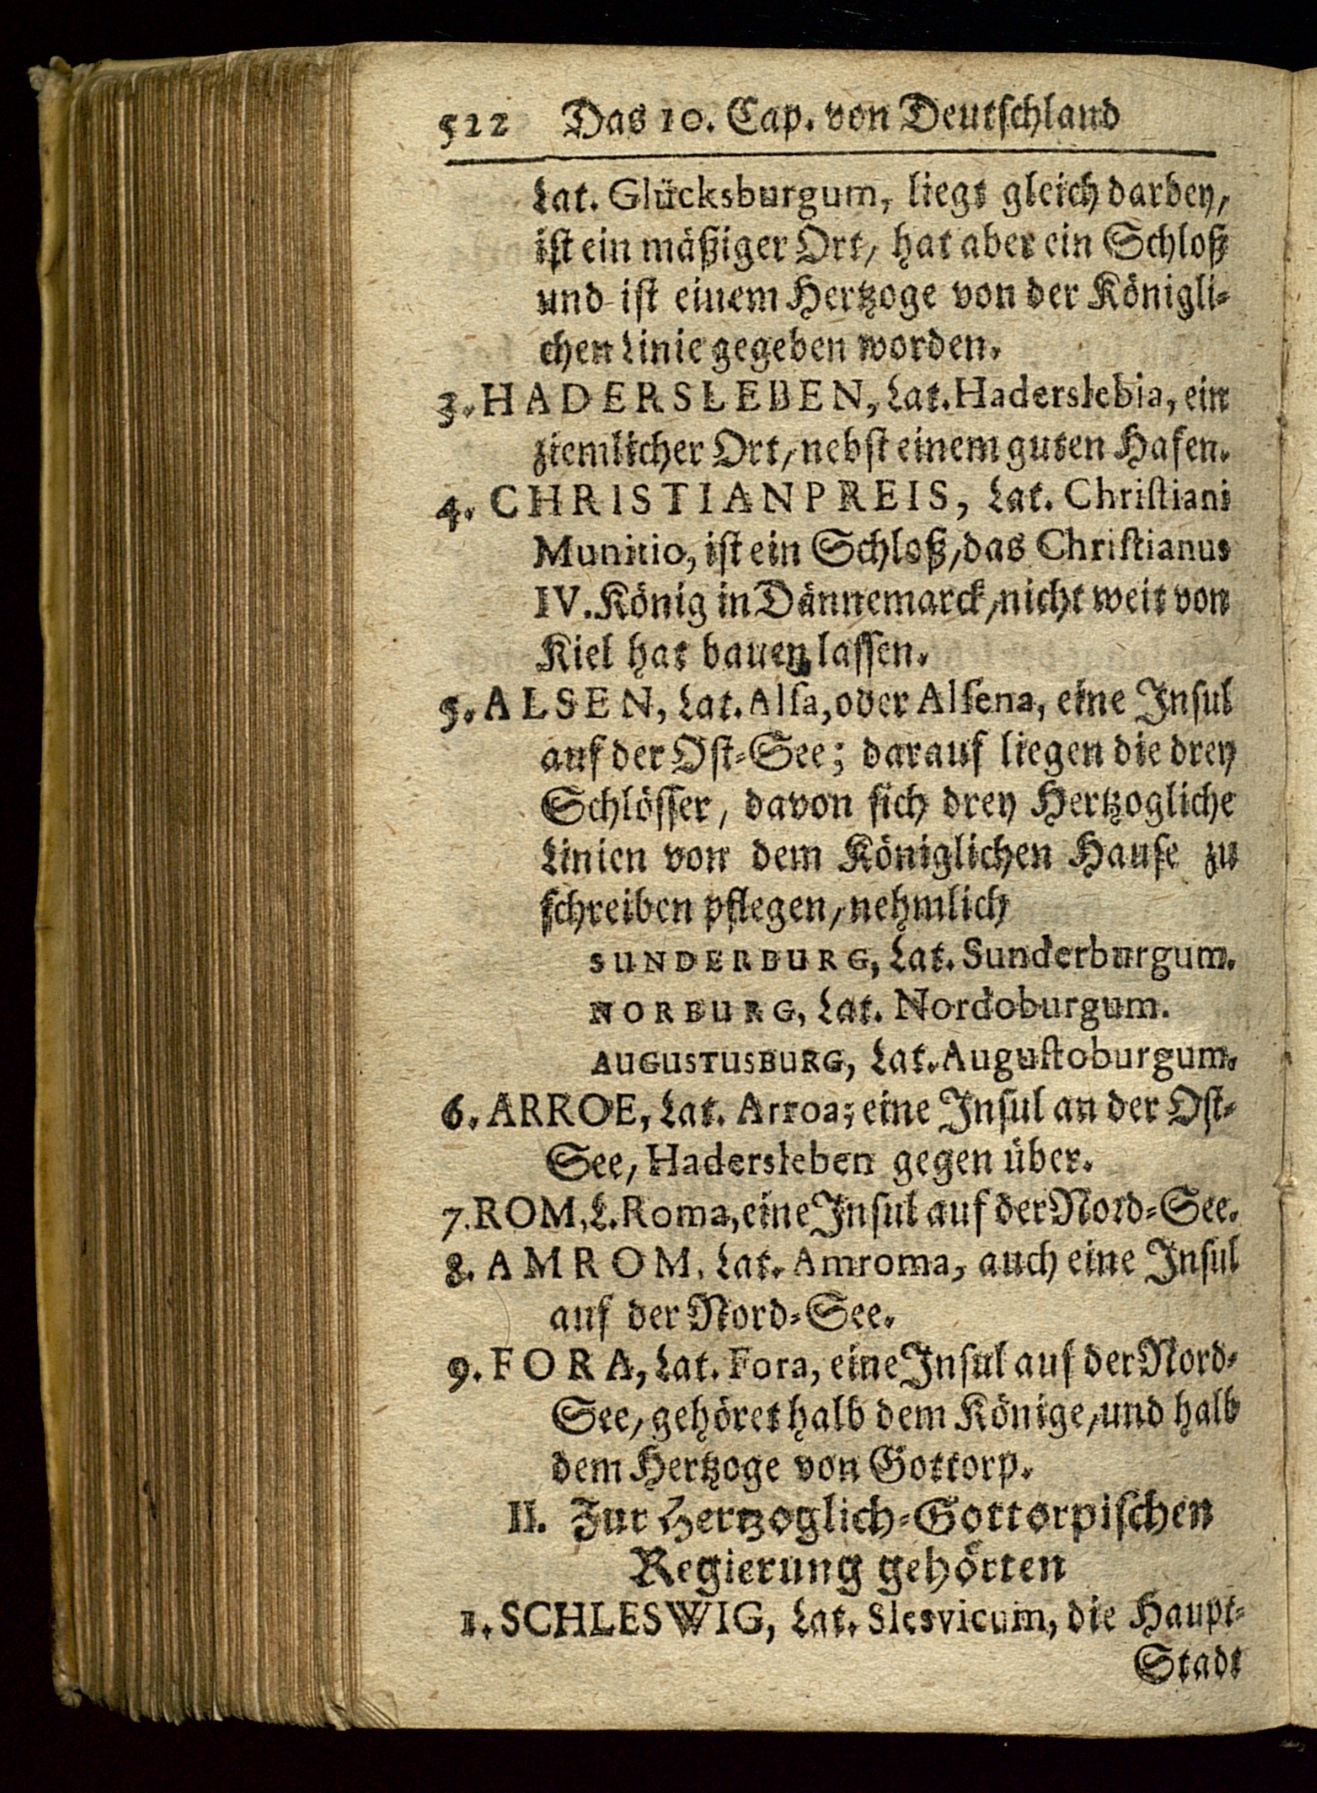 522 Das 10. Cap. von Deutschland
Lat. Glücksburgum, liegt gleich darbey,
ist ein mäßiger Ort, hat aber ein Schloß
und ist einem Hertzoge von der Königli-
chen Linie gegeben worden.
3. HADERSLEBEN, Lat. Haderslebia, ein
ziemlicher Ort, nebst einem guten Hafen.
4. CHRISTIANPREIS, Lat. Christiani
Munitio, ist ein Schloß, das Christianus
IV. König in Dännemarck, nicht weit von
Kiel hat bauen lassen.
5. ALSEN, Lat. Alsa, oder Alsena, eine Insul
auf der Ost-See; darauf liegen die drey
Schlösser, davon sich drey Hertzogliche
Linien von dem Königlichen Hause zu
schreiben pflegen, nehmlich
SUNDERBURG, Lat. Sunderburgum.
NORBURG, Lat. Nordoburgum.
AUGUSTUSBURG, Lat. Augustoburgum.
6. ARROE, Lat. Arroa; eine Insul an der Ost-
See, Hadersleben gegen über.
7. ROM, L. Roma, eine Insul auf der Nord-See.
8. AMROM, Lat. Amroma, auch eine Insul
auf der Nord-See.
9. FORA, Lat. Fora, eine Insul auf der Nord-
See, gehöret halb dem Könige, und halb
dem Hertzoge von Gottorp.
II. Zur Hertzoglich-Gottorpischen
Regierung gehörten
1. SCHLESWIG, Lat. Slesvicum, die Haupt-
Stadt